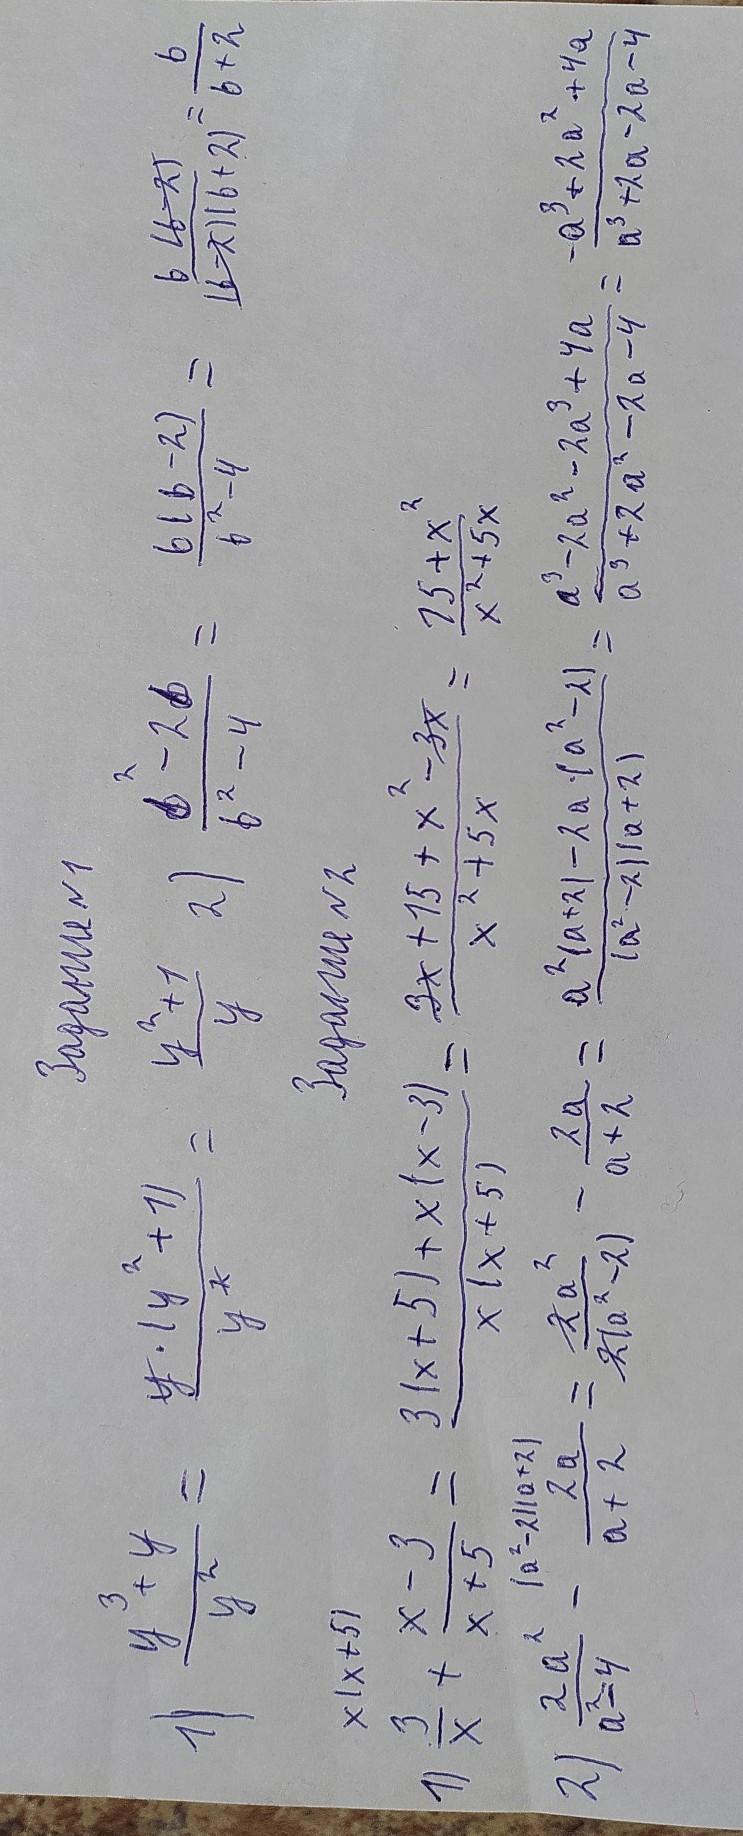 Задание №1
1) (y³ + y)/y² = (y·(y²+1))/y² = (y²+1)/y 2) (b² - 2b)/(b² - 4) = (b(b-2))/(b²-4) = (b(b-2))/((b-2)(b+2)) = b/(b+2)
Задание №2
x(x+5)
1) 3/x + (x-3)/(x+5) = (3(x+5)+x(x-3))/(x(x+5)) = (3x+15+x²-3x)/(x²+5x) = (15+x²)/(x²+5x)
(a²-2)(a+2)
2) 2a²/(a²-4) - 2a/(a+2) = 2a²/(2(a²-2)) - 2a/(a+2) = (a²(a+2)-2a·(a²-2))/((a²-2)(a+2)) = (a³-2a²-2a³+4a)/(a³+2a²-2a-4) = (-a³+2a²+4a)/(a³+2a-2a-4)